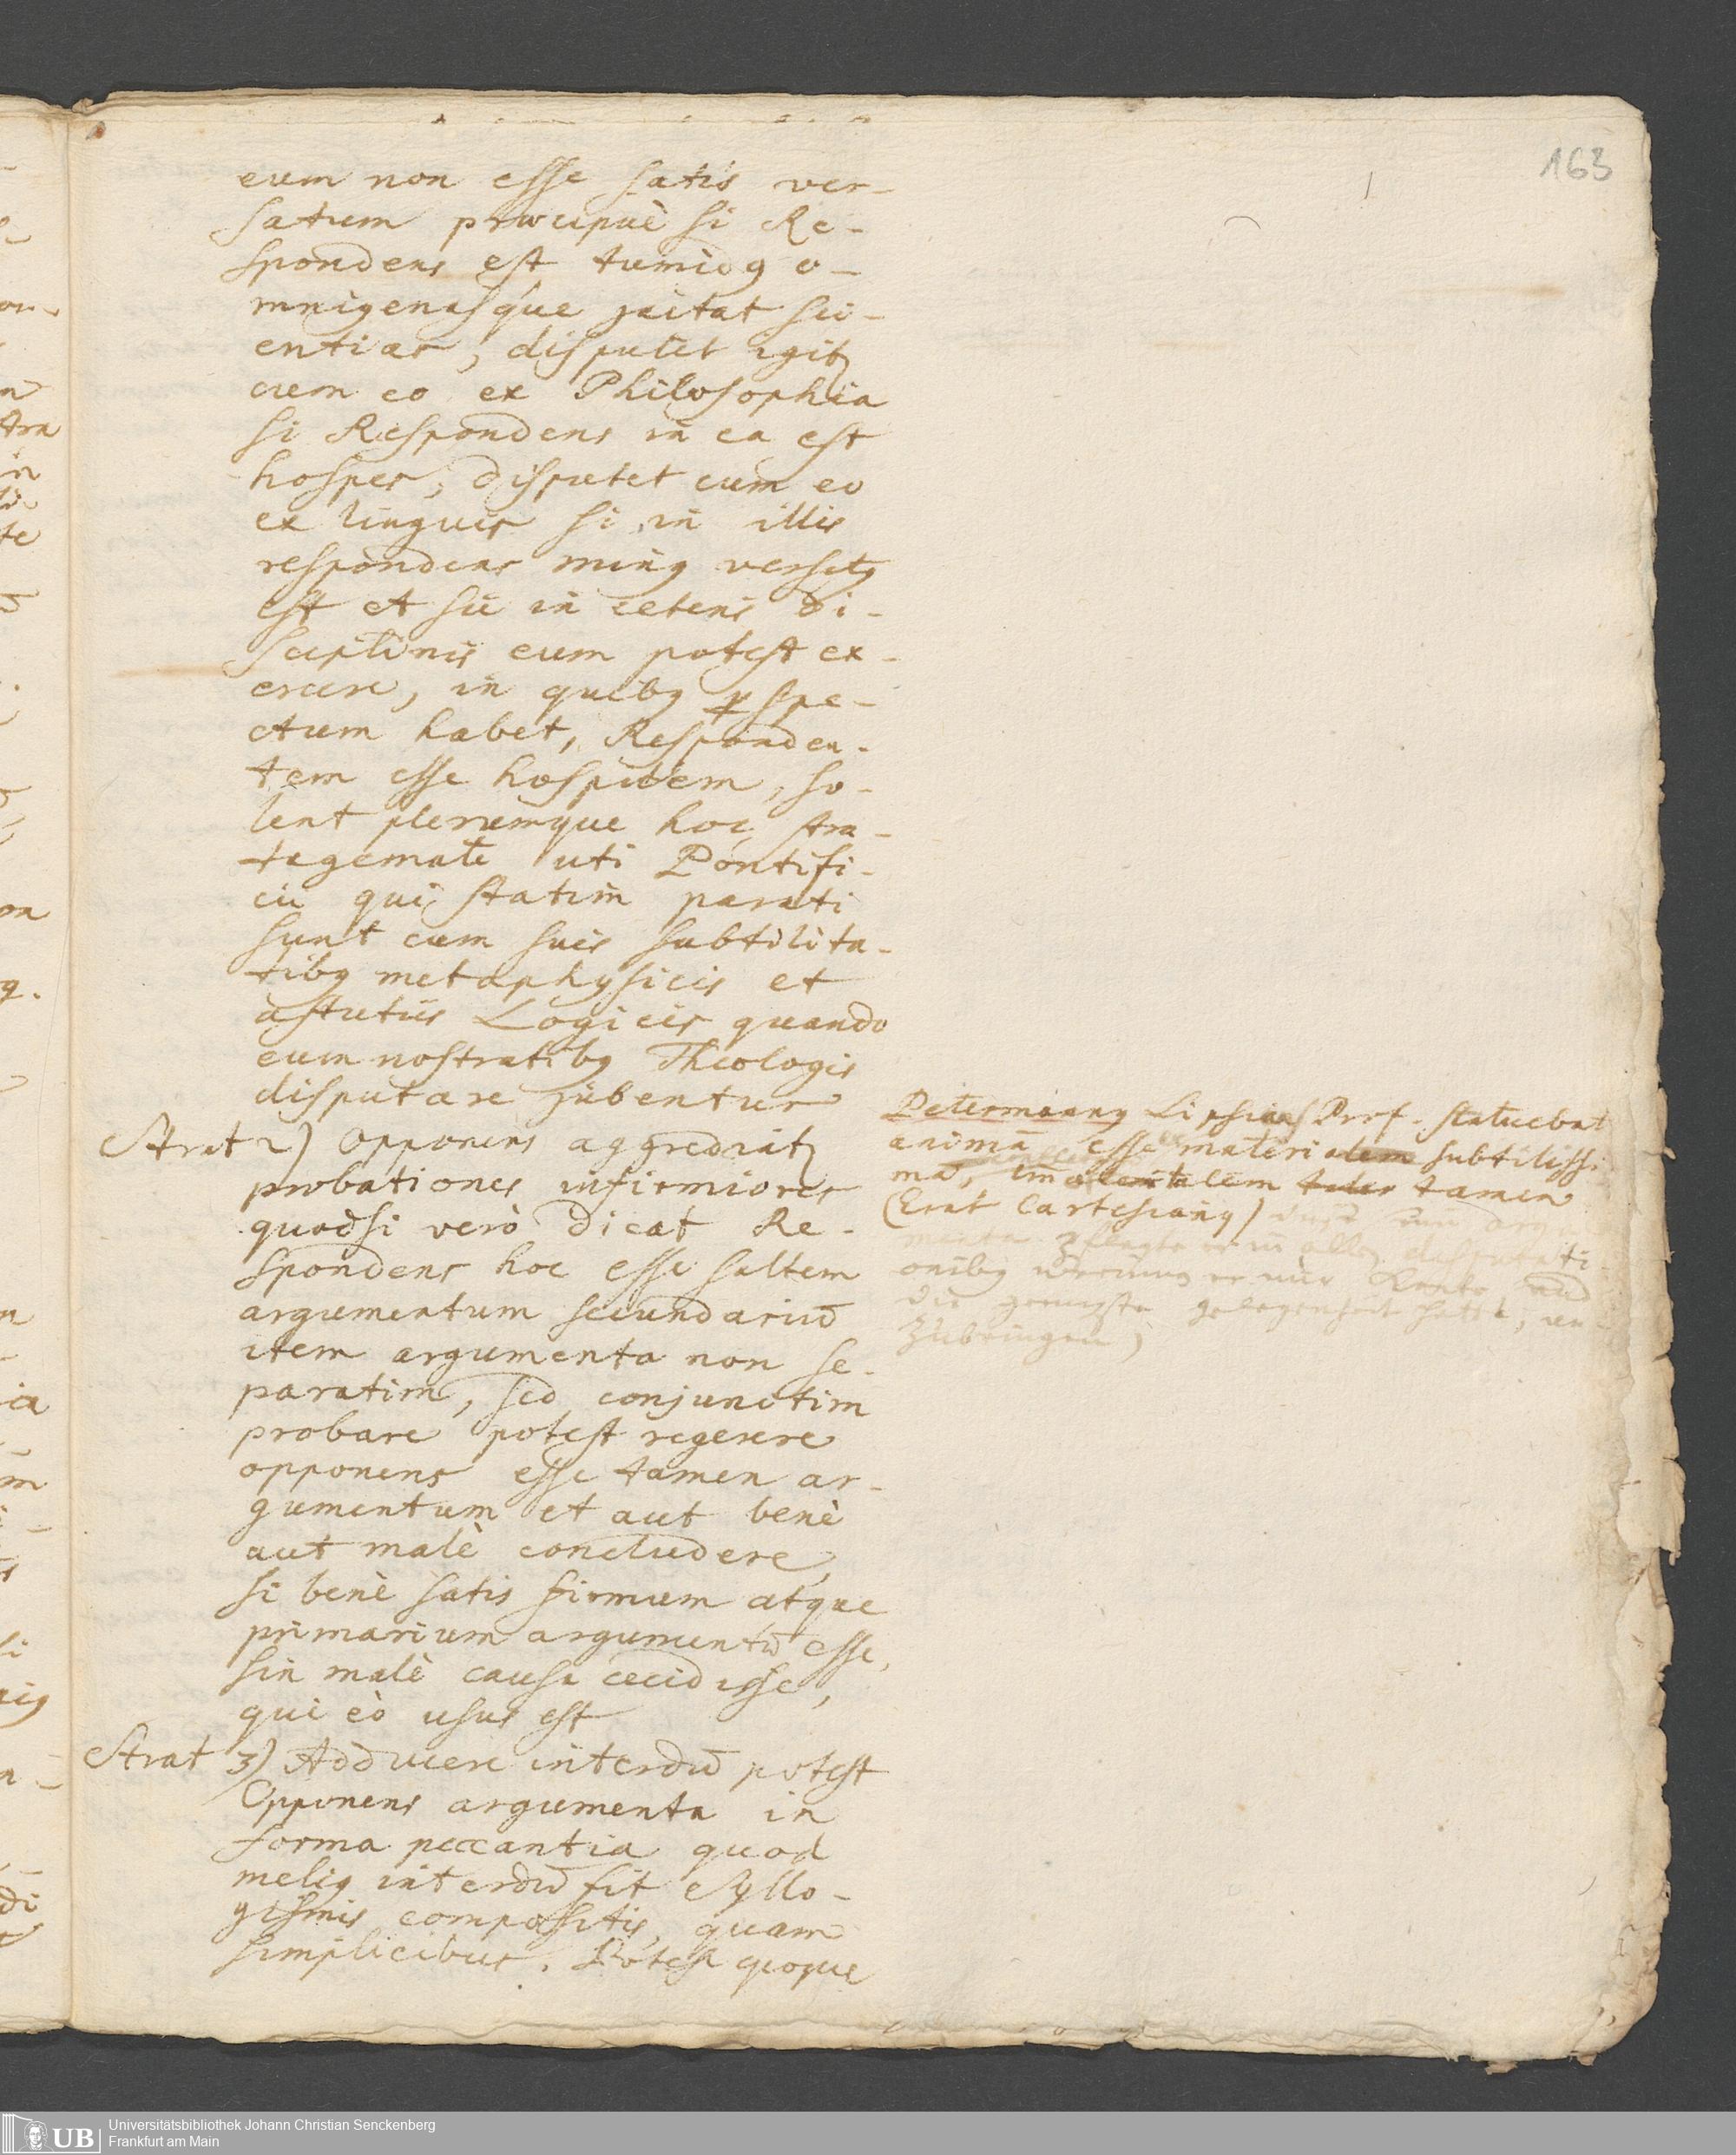 163
eum non esse satis ver-
satum præcipuè si Re-
spondens est tumidꝰ o-
mnigenasque jactat sci-
entias, disputet igitꝛ
cum eo ex Philosophia
si Respondens in ea est
hospes, disputet cum eo
ex linguis si in illis
respondens minꝰ versatꝰ
est et sic in ceteris di-
sciplinis eum potest ex-
ercere, in quibꝰ ꝑspe-
ctum habet, Responden-
tem esse hospitem, so-
lent plerumque hoc stra-
tegemate uti Pontifi-
cii qui statim parati
sunt cum suis subtilita-
tibꝰ metaphysicis et
astutiis Logicis quando
cum nostratibꝰ Theologis
disputare jubentur
Strat 2) Opponens aggrediatꝛ
probationes infirmiores
quodsi verò dicat Re-
spondens hoc esse saltem
argumentum secundariū
item argumenta non se-
paratim, sed conjunctim
probare potest regerere
opponens esse tamen ar-
gumentum et aut benè
aut malè concludere,
si benè satis firmum atque
primarium argumentū esse,
sin malè causa cecidisse,
qui eò usus est
Strat 3) Adducere interdū potest
Opponens argumenta in
forma peccantia quod
meliꝰ interdū fit Syllo-
gismis compositis, quam
simplicibus. Potest quoque
Petermannꝰ Lipsiens Prof. statuebat
animā esse materialem subtilissi
mā, tamen
(Erat Cartesianꝰ) arg
menta pflegte er in allen disputati-
onibꝰ er nur und
die geringste gelegenheit hatte, an-
zubringen)